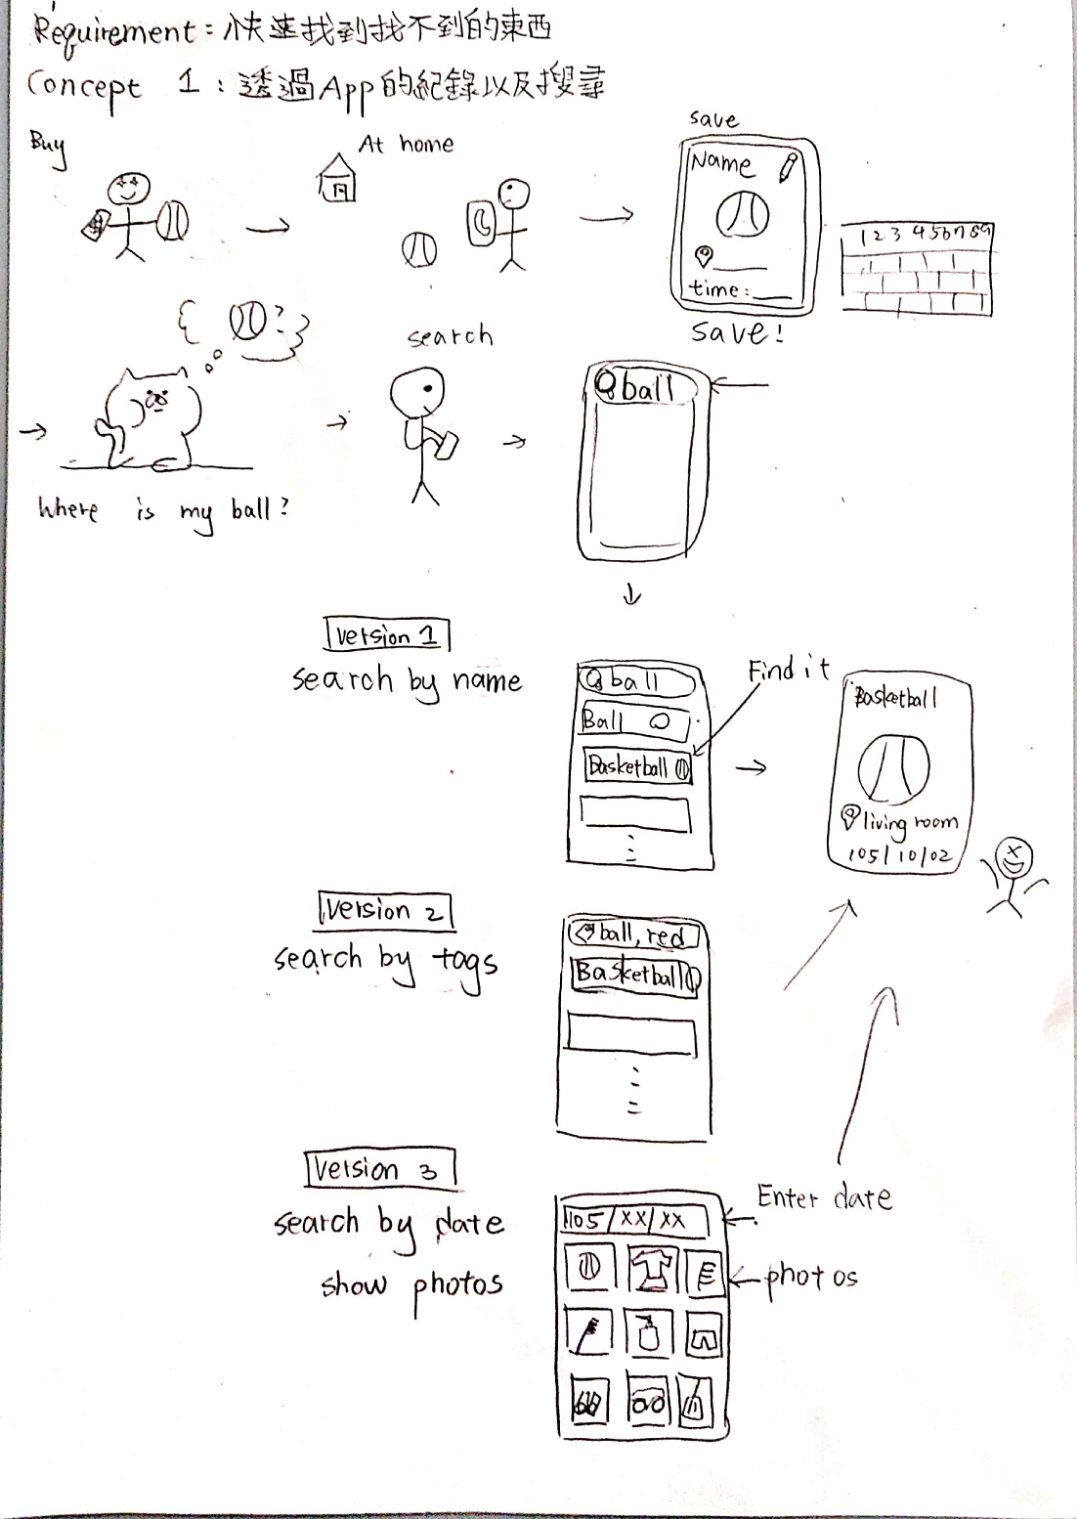 Requirement：快速找到找不到的東西
Concept 1：透過App的紀錄以及搜尋
Buy
At home
save
Name
time:
save!
1 2 3 4 5 6 7 8 9
?
Where is my ball?
search
ball
version 1
search by name
ball
Ball
Basketball
Find it
Basketball
living room
105/10/02
version 2
search by tags
ball, red
Basketball
version 3
search by date
show photos
105/XX/XX
Enter date
photos